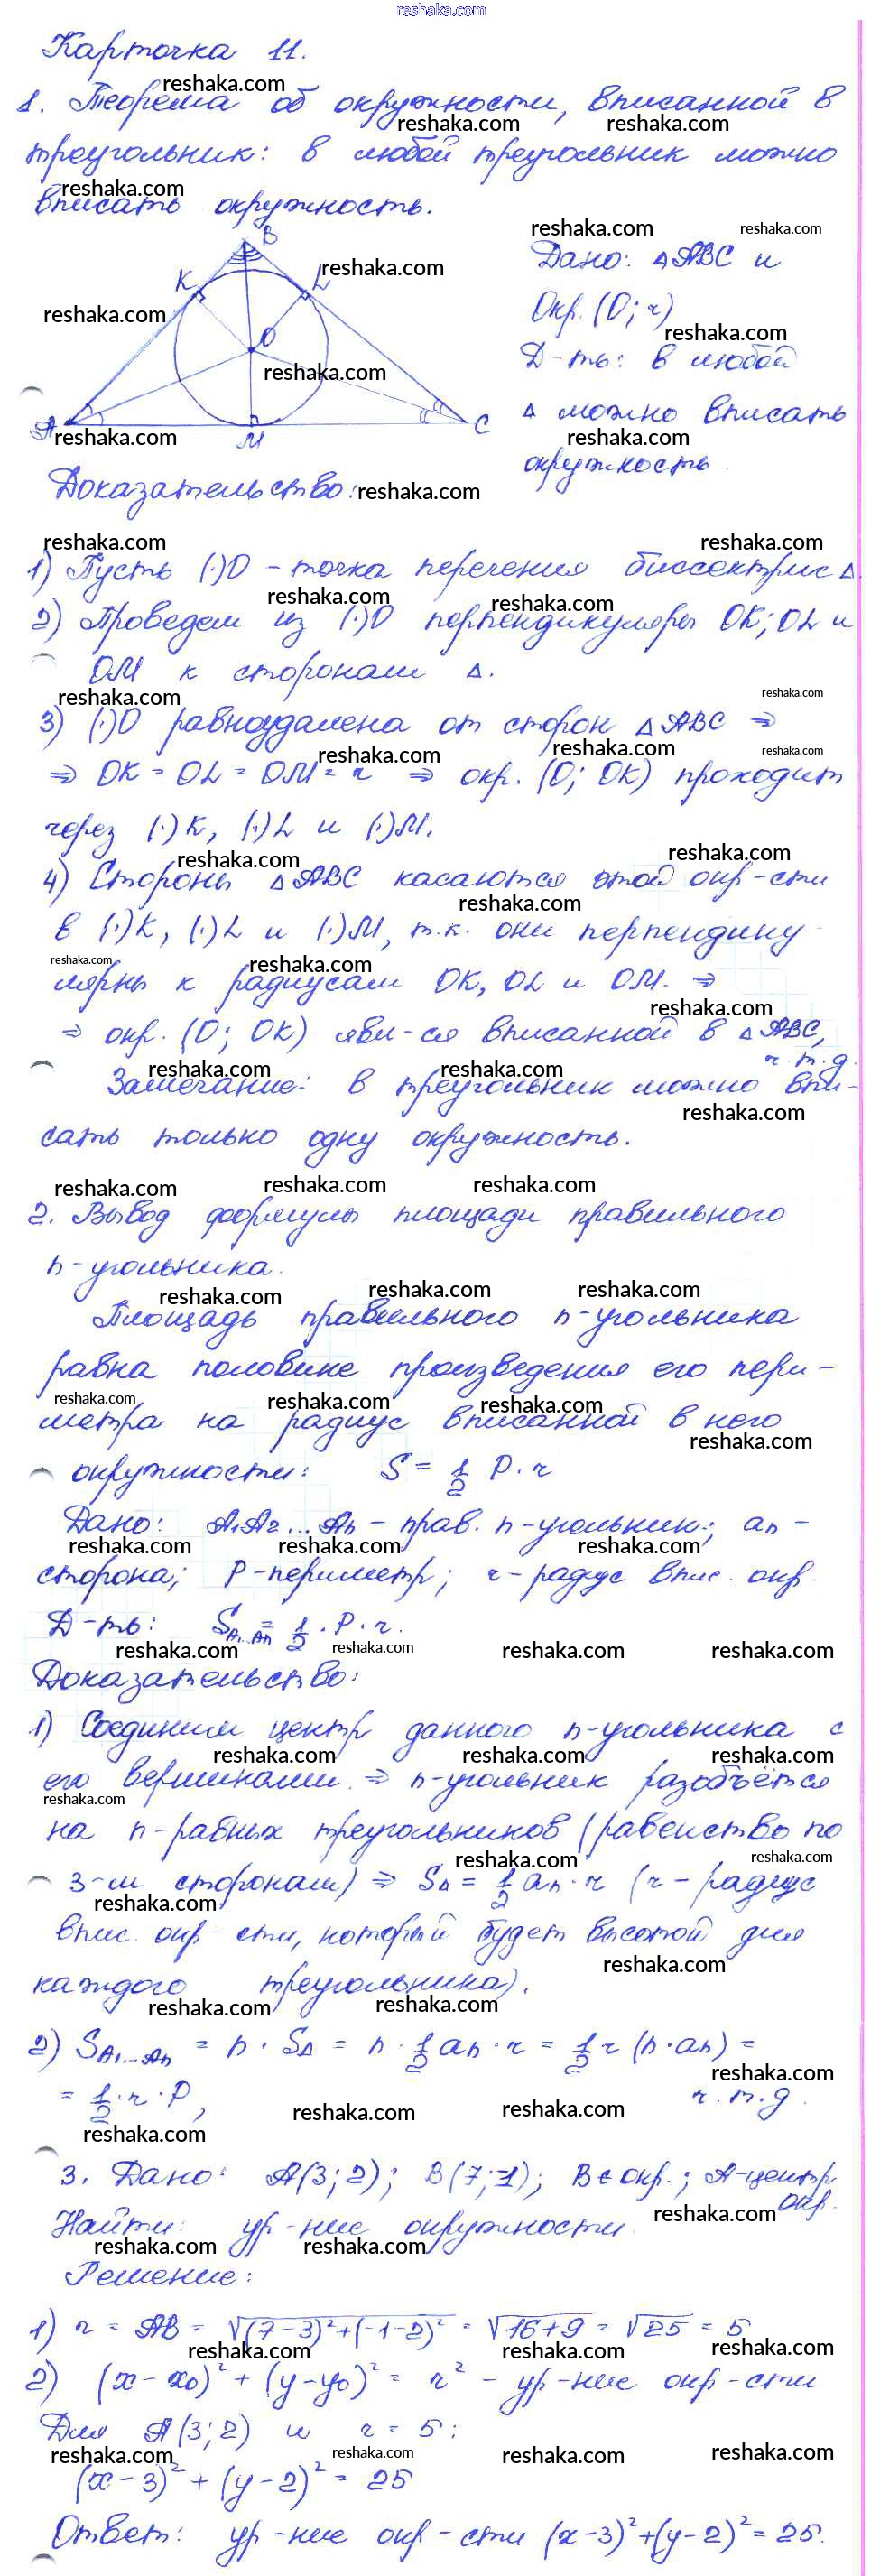 reshaka.com
Карточка 11.
1. Теорема об окружности, вписанной в
треугольник: в любой треугольник можно
вписать окружность.
B
K
L
O
A
M
C
Дано: △ABC и
Окр. (O; r)
Д-ть: в любой
△ можно вписать
окружность.
Доказательство:
1) Пусть (·)O - точка перечения биссектрис △.
2) Проведем из (·)O перпендикуляры OK; OL и
OM к сторонам △.
3) (·)O равноудалена от сторон △ABC ⇒
⇒ OK = OL = OM = r ⇒ окр. (O; OK) проходит
через (·)K, (·)L и (·)M.
4) Стороны △ABC касаются этой окр-сти
в (·)K, (·)L и (·)M, т.к. они перпендику-
лярны к радиусам OK, OL и OM. ⇒
⇒ окр. (O; OK) явл-ся вписанной в △ABC,
ч.т.д.
Замечание: в треугольник можно впи-
сать только одну окружность.
2. Вывод формулы площади правильного
n-угольника.
Площадь правильного n-угольника
равна половине произведения его пери-
метра на радиус вписанной в него
окружности: S = 1/2 P · r
Дано: A₁A₂...Aₙ - прав. n-угольник; aₙ -
сторона; P-периметр; r-радиус впис. окр.
Д-ть: S_A₁...Aₙ = 1/2 · P · r.
Доказательство:
1) Соединим центр данного n-угольника с
его вершинами. ⇒ n-угольник разобьётся
на n-равных треугольников (равенство по
3-м сторонам) ⇒ S△ = 1/2 aₙ · r (r - радиус
впис. окр-сти, который будет высотой для
каждого треугольника).
2) S_A₁...Aₙ = n · S△ = n · 1/2 aₙ · r = 1/2 r (n · aₙ) =
= 1/2 · r · P, ч.т.д.
3. Дано: A(3; 2); B(7; -1); B ∈ окр.; A-центр
окр.
Найти: ур-ние окружности.
Решение:
1) r = AB = √(7-3)² + (-1-2)² = √16+9 = √25 = 5
2) (x - x₀)² + (y - y₀)² = r² - ур-ние окр-сти
Для A(3; 2) и r = 5:
(x - 3)² + (y - 2)² = 25
Ответ: ур-ние окр-сти (x-3)² + (y-2)² = 25.